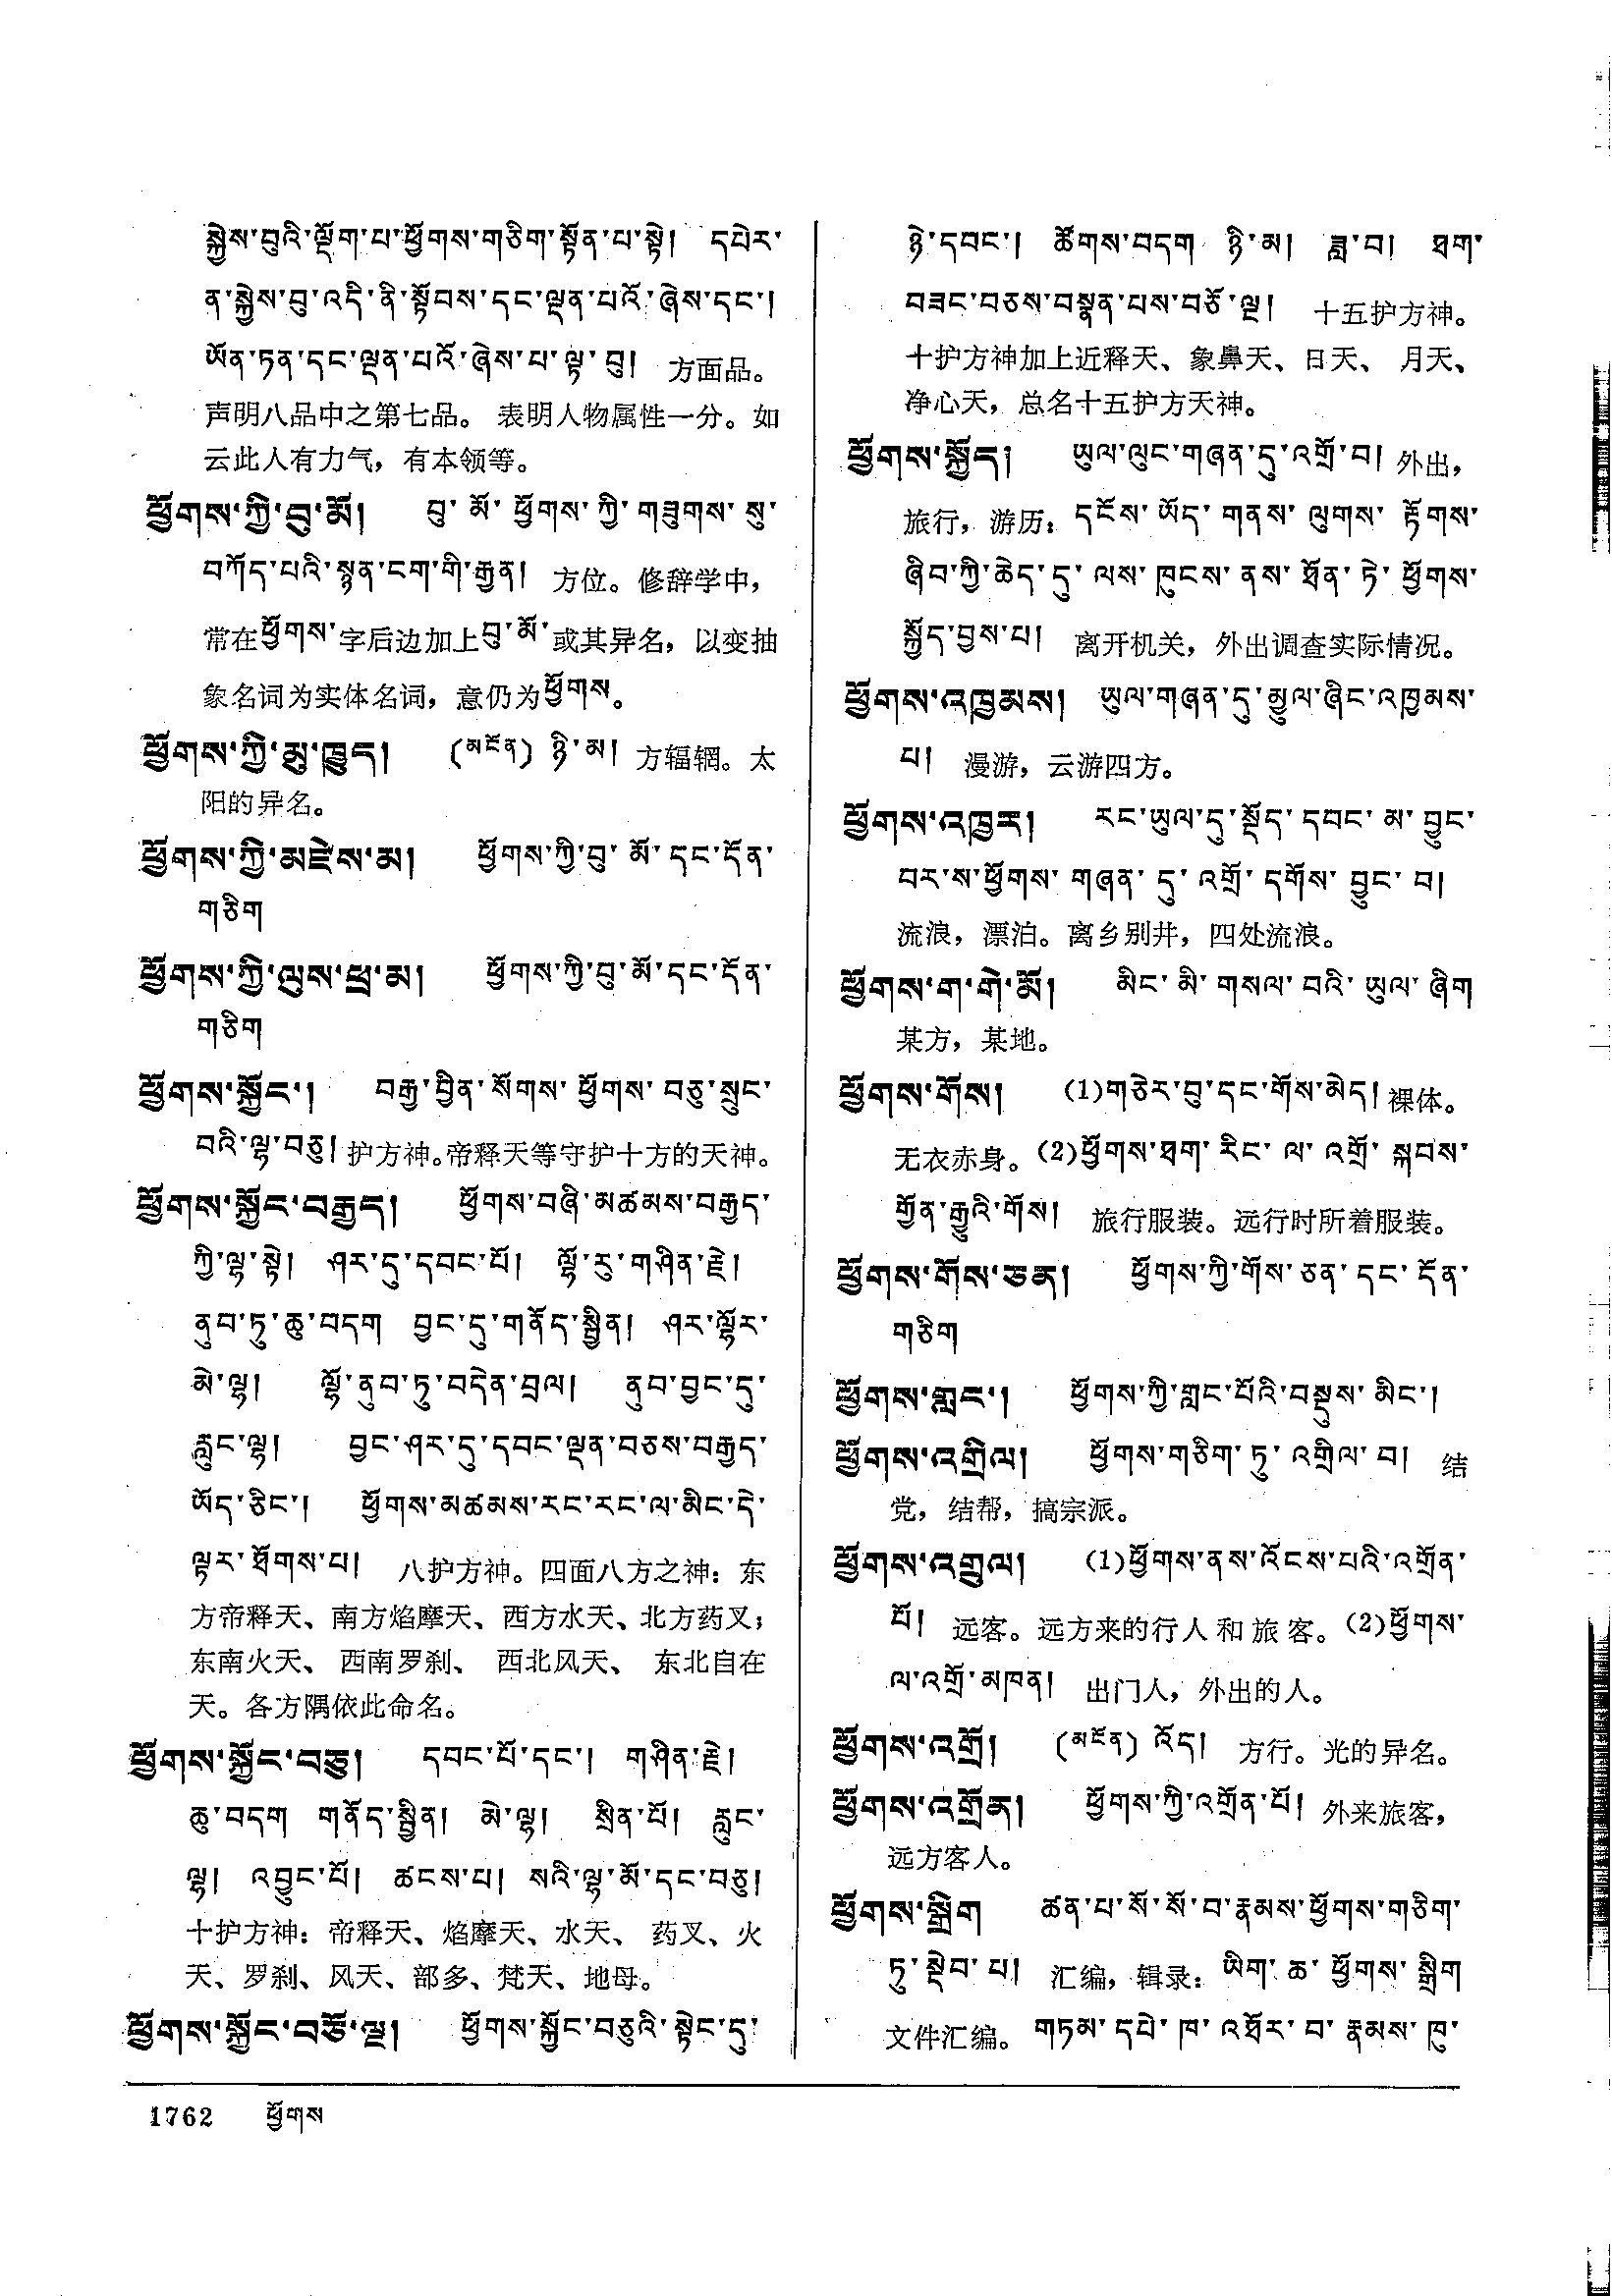 སྐྱེས་བུའི་ལྡོག་པ་ཕྱོགས་གཅིག་སྟོན་པ་སྟེ། དཔེར་
ན་སྐྱེས་བུ་འདི་ནི་སྟོབས་དང་ལྡན་པའོ་ཞེས་དང་།
ཡོན་ཏན་དང་ལྡན་པའོ་ཞེས་པ་ལྟ་བུ། 方面品。
声明八品中之第七品。 表明人物属性一分。如
云此人有力气，有本领等。
ཕྱོགས་ཀྱི་བུ་མོ། བུ་མོ་ཕྱོགས་ཀྱི་གཟུགས་སུ་
བཀོད་པའི་སྙན་ངག་གི་རྒྱན། 方位。修辞学中，
常在ཕྱོགས་字后边加上བུ་མོ་或其异名，以变抽
象名词为实体名词，意仍为ཕྱོགས。
ཕྱོགས་ཀྱི་མུ་ཁྱུད། (མངོན) ཉི་མ། 方辐辋。太
阳的异名。
ཕྱོགས་ཀྱི་མཛེས་མ། ཕྱོགས་ཀྱི་བུ་མོ་དང་དོན་
གཅིག
ཕྱོགས་ཀྱི་ལུས་ཕྲ་མ། ཕྱོགས་ཀྱི་བུ་མོ་དང་དོན་
གཅིག
ཕྱོགས་སྐྱོང་། བརྒྱ་བྱིན་སོགས་ཕྱོགས་བཅུ་སྲུང་
བའི་ལྷ་བཅུ། 护方神。帝释天等守护十方的天神。
ཕྱོགས་སྐྱོང་བརྒྱད། ཕྱོགས་བཞི་མཚམས་བརྒྱད་
ཀྱི་ལྷ་སྟེ། ཤར་དུ་དབང་པོ། ལྷོ་རུ་གཤིན་རྗེ།
ནུབ་ཏུ་ཆུ་བདག བྱང་དུ་གནོད་སྦྱིན། ཤར་ལྷོར་
མེ་ལྷ། ལྷོ་ནུབ་ཏུ་བདེན་བྲལ། ནུབ་བྱང་དུ་
རླུང་ལྷ། བྱང་ཤར་དུ་དབང་ལྡན་བཅས་བརྒྱད་
ཡོད་ཅིང་། ཕྱོགས་མཚམས་རང་རང་ལ་མིང་དེ་
ལྟར་ཐོགས་པ། 八护方神。四面八方之神：东
方帝释天、南方焰摩天、西方水天、北方药叉；
东南火天、 西南罗刹、 西北风天、 东北自在
天。各方隅依此命名。
ཕྱོགས་སྐྱོང་བཅུ། དབང་པོ་དང་། གཤིན་རྗེ།
ཆུ་བདག གནོད་སྦྱིན། མེ་ལྷ། སྲིན་པོ། རླུང་
ལྷ། འབྱུང་པོ། ཚངས་པ། སའི་ལྷ་མོ་དང་བཅུ།
十护方神：帝释天、焰摩天、水天、 药叉、火
天、罗刹、风天、部多、梵天、地母。
ཕྱོགས་སྐྱོང་བཅོ་ལྔ། ཕྱོགས་སྐྱོང་བཅུའི་སྟེང་དུ་
ཉེ་དབང་། ཚོགས་བདག ཉི་མ། ཟླ་བ། ཐག་
བཟང་བཅས་བསྣན་པས་བཅོ་ལྔ། 十五护方神。
十护方神加上近释天、象鼻天、日天、 月天、
净心天，总名十五护方天神。
ཕྱོགས་སྐྱོད། ཡུལ་ལུང་གཞན་དུ་འགྲོ་བ། 外出，
旅行，游历：དངོས་ཡོད་གནས་ལུགས་རྟོགས་
ཞིབ་ཀྱི་ཆེད་དུ་ལས་ཁུངས་ནས་ཐོན་ཏེ་ཕྱོགས་
སྐྱོད་བྱས་པ། 离开机关，外出调查实际情况。
ཕྱོགས་འཁྱམས། ཡུལ་གཞན་དུ་མྱུལ་ཞིང་འཁྱམས་
པ། 漫游，云游四方。
ཕྱོགས་འཁྱར། རང་ཡུལ་དུ་སྡོད་དབང་མ་བྱུང་
བར་ས་ཕྱོགས་གཞན་དུ་འགྲོ་དགོས་བྱུང་བ།
流浪，漂泊。离乡别井，四处流浪。
ཕྱོགས་ག་གེ་མོ། མིང་མི་གསལ་བའི་ཡུལ་ཞིག
某方，某地。
ཕྱོགས་གོས། (1)གཅེར་བུ་དང་གོས་མེད། 裸体。
无衣赤身。(2)ཕྱོགས་ཐག་རིང་ལ་འགྲོ་སྐབས་
གྱོན་རྒྱུའི་གོས། 旅行服装。远行时所着服装。
ཕྱོགས་གོས་ཅན། ཕྱོགས་ཀྱི་གོས་ཅན་དང་དོན་
གཅིག
ཕྱོགས་གླང་། ཕྱོགས་ཀྱི་གླང་པོའི་བསྡུས་མིང་།
ཕྱོགས་འགྲིལ། ཕྱོགས་གཅིག་ཏུ་འགྲིལ་བ། 结
党，结帮，搞宗派。
ཕྱོགས་འགྲུལ། (1)ཕྱོགས་ནས་འོངས་པའི་འགྲོན་
པོ། 远客。远方来的行人和旅客。(2)ཕྱོགས་
ལ་འགྲོ་མཁན། 出门人，外出的人。
ཕྱོགས་འགྲོ། (མངོན) འོད། 方行。光的异名。
ཕྱོགས་འགྲོན། ཕྱོགས་ཀྱི་འགྲོན་པོ། 外来旅客，
远方客人。
ཕྱོགས་སྒྲིག ཚན་པ་སོ་སོ་བ་རྣམས་ཕྱོགས་གཅིག་
ཏུ་སྡེབ་པ། 汇编，辑录：ཡིག་ཆ་ཕྱོགས་སྒྲིག
文件汇编。 གཏམ་དཔེ་ཁ་འཐོར་བ་རྣམས་ཁུ་
1762 ཕྱོགས